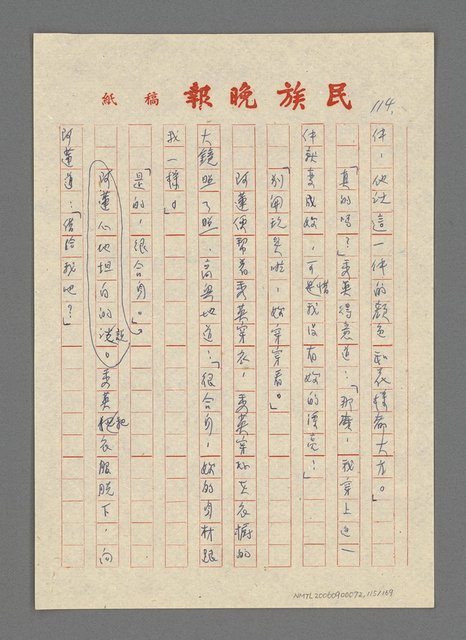 民族晚報 稿紙
114.
件，他说這一件的顏色和衣樣都大方。」
「真的嗎？」秀英得意道：「那麽，我穿上这一
件就变成妳，可惜我没有妳的漂亮！」
「别開玩笑啦，妳穿穿看。」
阿蓮便幫着秀英穿衣，秀英穿好，在衣櫥的
大鏡照了照，高興地道：「很合身，妳的身材跟
我一樣。」
「是的，很合身。」
阿蓮心地坦白的说。秀英把衣服脱下，向
阿蓮道：「借给我吧？」
NMTL20060900072,115/169